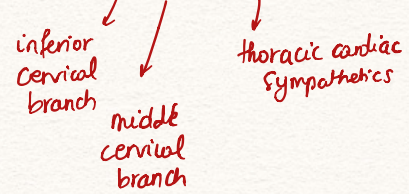 inferior
cervical
branch
middle
cervical
branch
thoracic cardiac
sympathetics